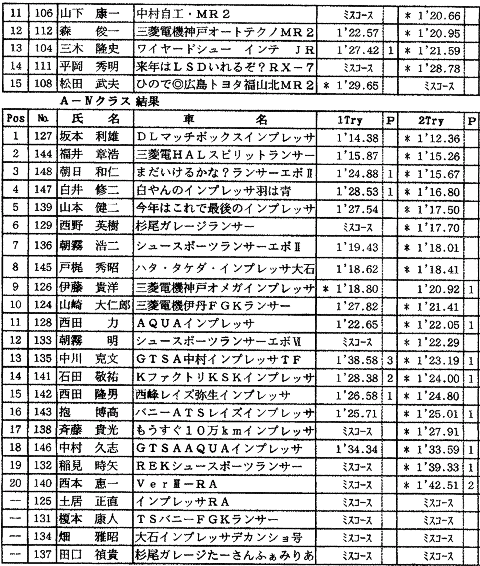 11 106 山下 康一 中村自工・MR2 ミスコース * 1'20.66
12 112 森 俊一 三菱電機神戸オートテクノMR2 1'22.57 * 1'20.95
13 104 三木 隆史 ワイヤードシュー インテ JR 1'27.42 1 * 1'21.59
14 111 平岡 秀明 来年はLSDいれるぞ?RX-7 ミスコース * 1'28.78
15 108 松田 武夫 ひので◎広島トヨタ福山北MR2 * 1'29.65 ミスコース
A-Ⅳクラス 結果
Pos No. 氏 名 車 名 1Try P 2Try P
1 127 坂本 利雄 DLマッチボックスインプレッサ 1'14.38 * 1'12.36
2 144 福井 章浩 三菱電HALスピリットランサー 1'15.87 * 1'15.26
3 148 朝日 和仁 まだいけるかな?ランサーエボⅡ 1'24.88 1 * 1'15.67
4 147 白井 修二 白やんのインプレッサ羽は青 1'28.53 1 * 1'16.80
5 139 山本 健二 今年はこれで最後のインプレッサ 1'27.54 * 1'17.50
6 129 西野 英樹 杉尾ガレージランサー ミスコース * 1'17.70
7 136 朝霧 浩二 シュースポーツランサーエボⅡ 1'19.43 * 1'18.01
8 145 戸梶 秀昭 ハタ・タケダ・インプレッサ大石 1'18.62 * 1'18.41
9 126 伊藤 貴洋 三菱電機神戸オメガインプレッサ * 1'18.80 1'20.92 1
10 124 山崎 大仁郎 三菱電機伊丹FGKランサー 1'27.82 * 1'21.41
11 128 西田 力 AQUAインプレッサ 1'22.65 * 1'22.05 1
12 133 朝霧 明 シュースポーツランサーエボⅥ ミスコース * 1'22.29
13 135 中川 克文 GTSA中村インプレッサTF 1'38.58 3 * 1'23.19 1
14 141 石田 敬祐 KファクトリKSKインプレッサ 1'28.38 2 * 1'24.00 1
15 142 西田 隆男 西峰レイズ弥生インプレッサ 1'26.58 1 * 1'24.80
16 143 抱 博高 バニーATSレイズインプレッサ 1'25.71 * 1'25.01 1
17 138 斉藤 貴光 もうすぐ10万kmインプレッサ ミスコース * 1'27.91
18 146 中村 久志 GTSAAQUAインプレッサ 1'34.34 * 1'33.59 1
19 132 稲見 時矢 REKシュースポーツランサー ミスコース * 1'39.33 1
20 140 西本 恵一 VerⅢ-RA ミスコース * 1'42.51 2
-- 125 土居 正直 インプレッサRA ミスコース ミスコース
-- 131 榎本 康人 TSバニーFGKランサー ミスコース ミスコース
-- 134 畑 雅昭 大石インプレッサデカンショ号 ミスコース ミスコース
-- 137 田口 禎貴 杉尾ガレージたーさんふぁみりあ ミスコース ミスコース